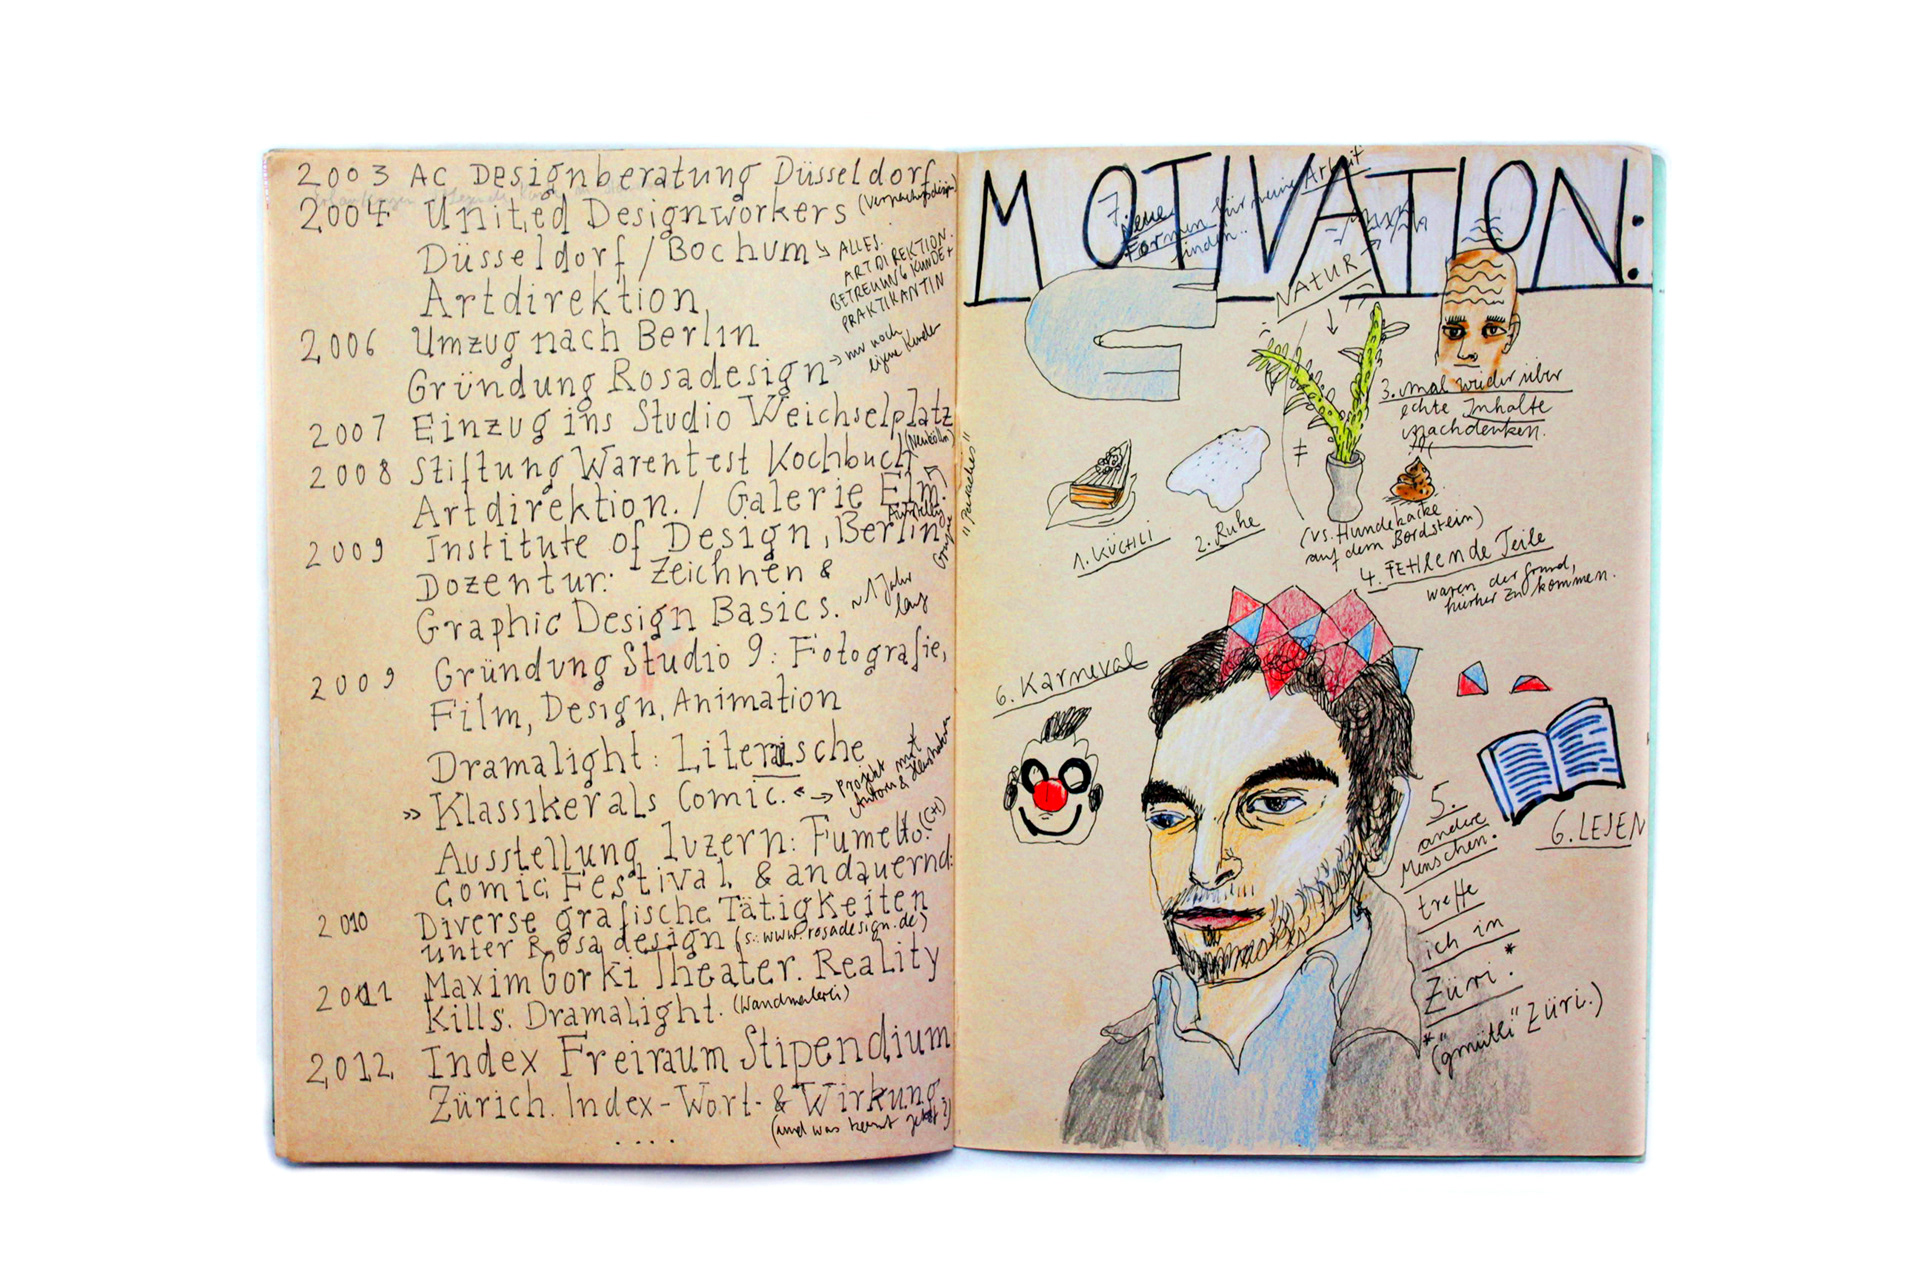 2003 AC Designberatung Düsseldorf
2004 United Designworkers
Düsseldorf / Bochum
ALLES:
ARTDIREKTION.
BETREUUNG KUNDE +
PRAKTIKANTIN
Artdirektion
2006 Umzug nach Berlin
Gründung Rosadesign
→ nur noch
eigene Kunden
2007 Einzug ins Studio Weichselplatz
(Neukölln)
2008 Stiftung Warentest Kochbuch
"Paradies"
Artdirektion. / Galerie Elm.
2009 Institute of Design, Berlin
Dozentur: Zeichnen &
Graphic Design Basics.
~1 Jahr
lang
2009 Gründung Studio 9: Fotografie,
Film, Design, Animation
Dramalight: Literarische
» Klassiker als Comic. «
→ Projekt mit
Ausstellung luzern: Fumetto. (CH)
Comic Festival & andauernd:
2010 Diverse grafische Tätigkeiten
unter Rosa design (s.: www.rosadesign.de)
2011 Maxim Gorki Theater. Reality
Kills. Dramalight. (Wandmalerei)
2012 Index Freiraum Stipendium
Zürich. Index-Wort- & Wirkung.
(und was kommt jetzt?)
....
MOTIVATION:
7. neue
Formen für meine Arbeit
finden..
NATUR
3. mal wieder über
echte Inhalte
nachdenken.
≠
1. KÜCHLI
2. Ruhe
(vs. Hundekacke
auf dem Bordstein)
4. FEHLENDE Teile
waren der Grund,
hierher zu kommen.
6. Karneval
5.
andere
Menschen.
treffe
ich in
Züri.*
*("gmütli" Züri.)
6. LESEN